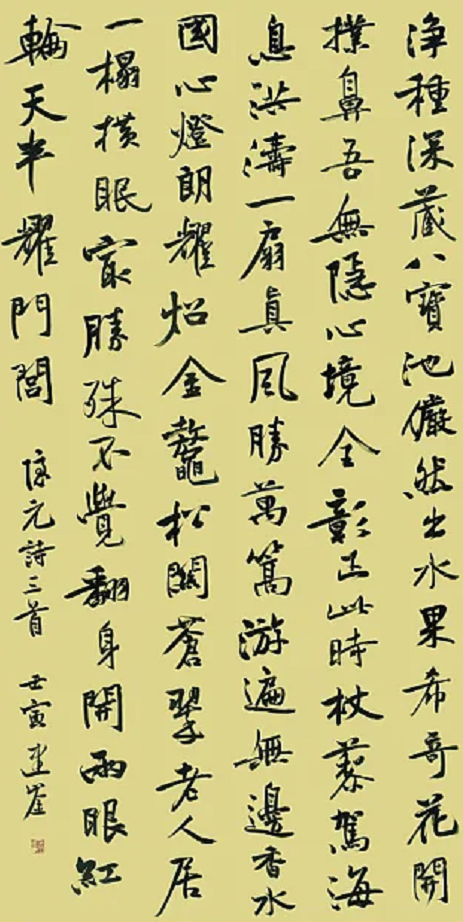 淨種深藏八寶池儼然出水果希奇花開
撲鼻吾無隱心境全彰正此時杖藜駕海
息洪濤一扇真風勝萬篙游遍無邊香水
國心燈朗耀炤金鼇松關蒼翠老人居
一榻橫眠㝡勝殊不覺翻身開兩眼紅
輪天半耀門閭 隱元詩三首 壬寅